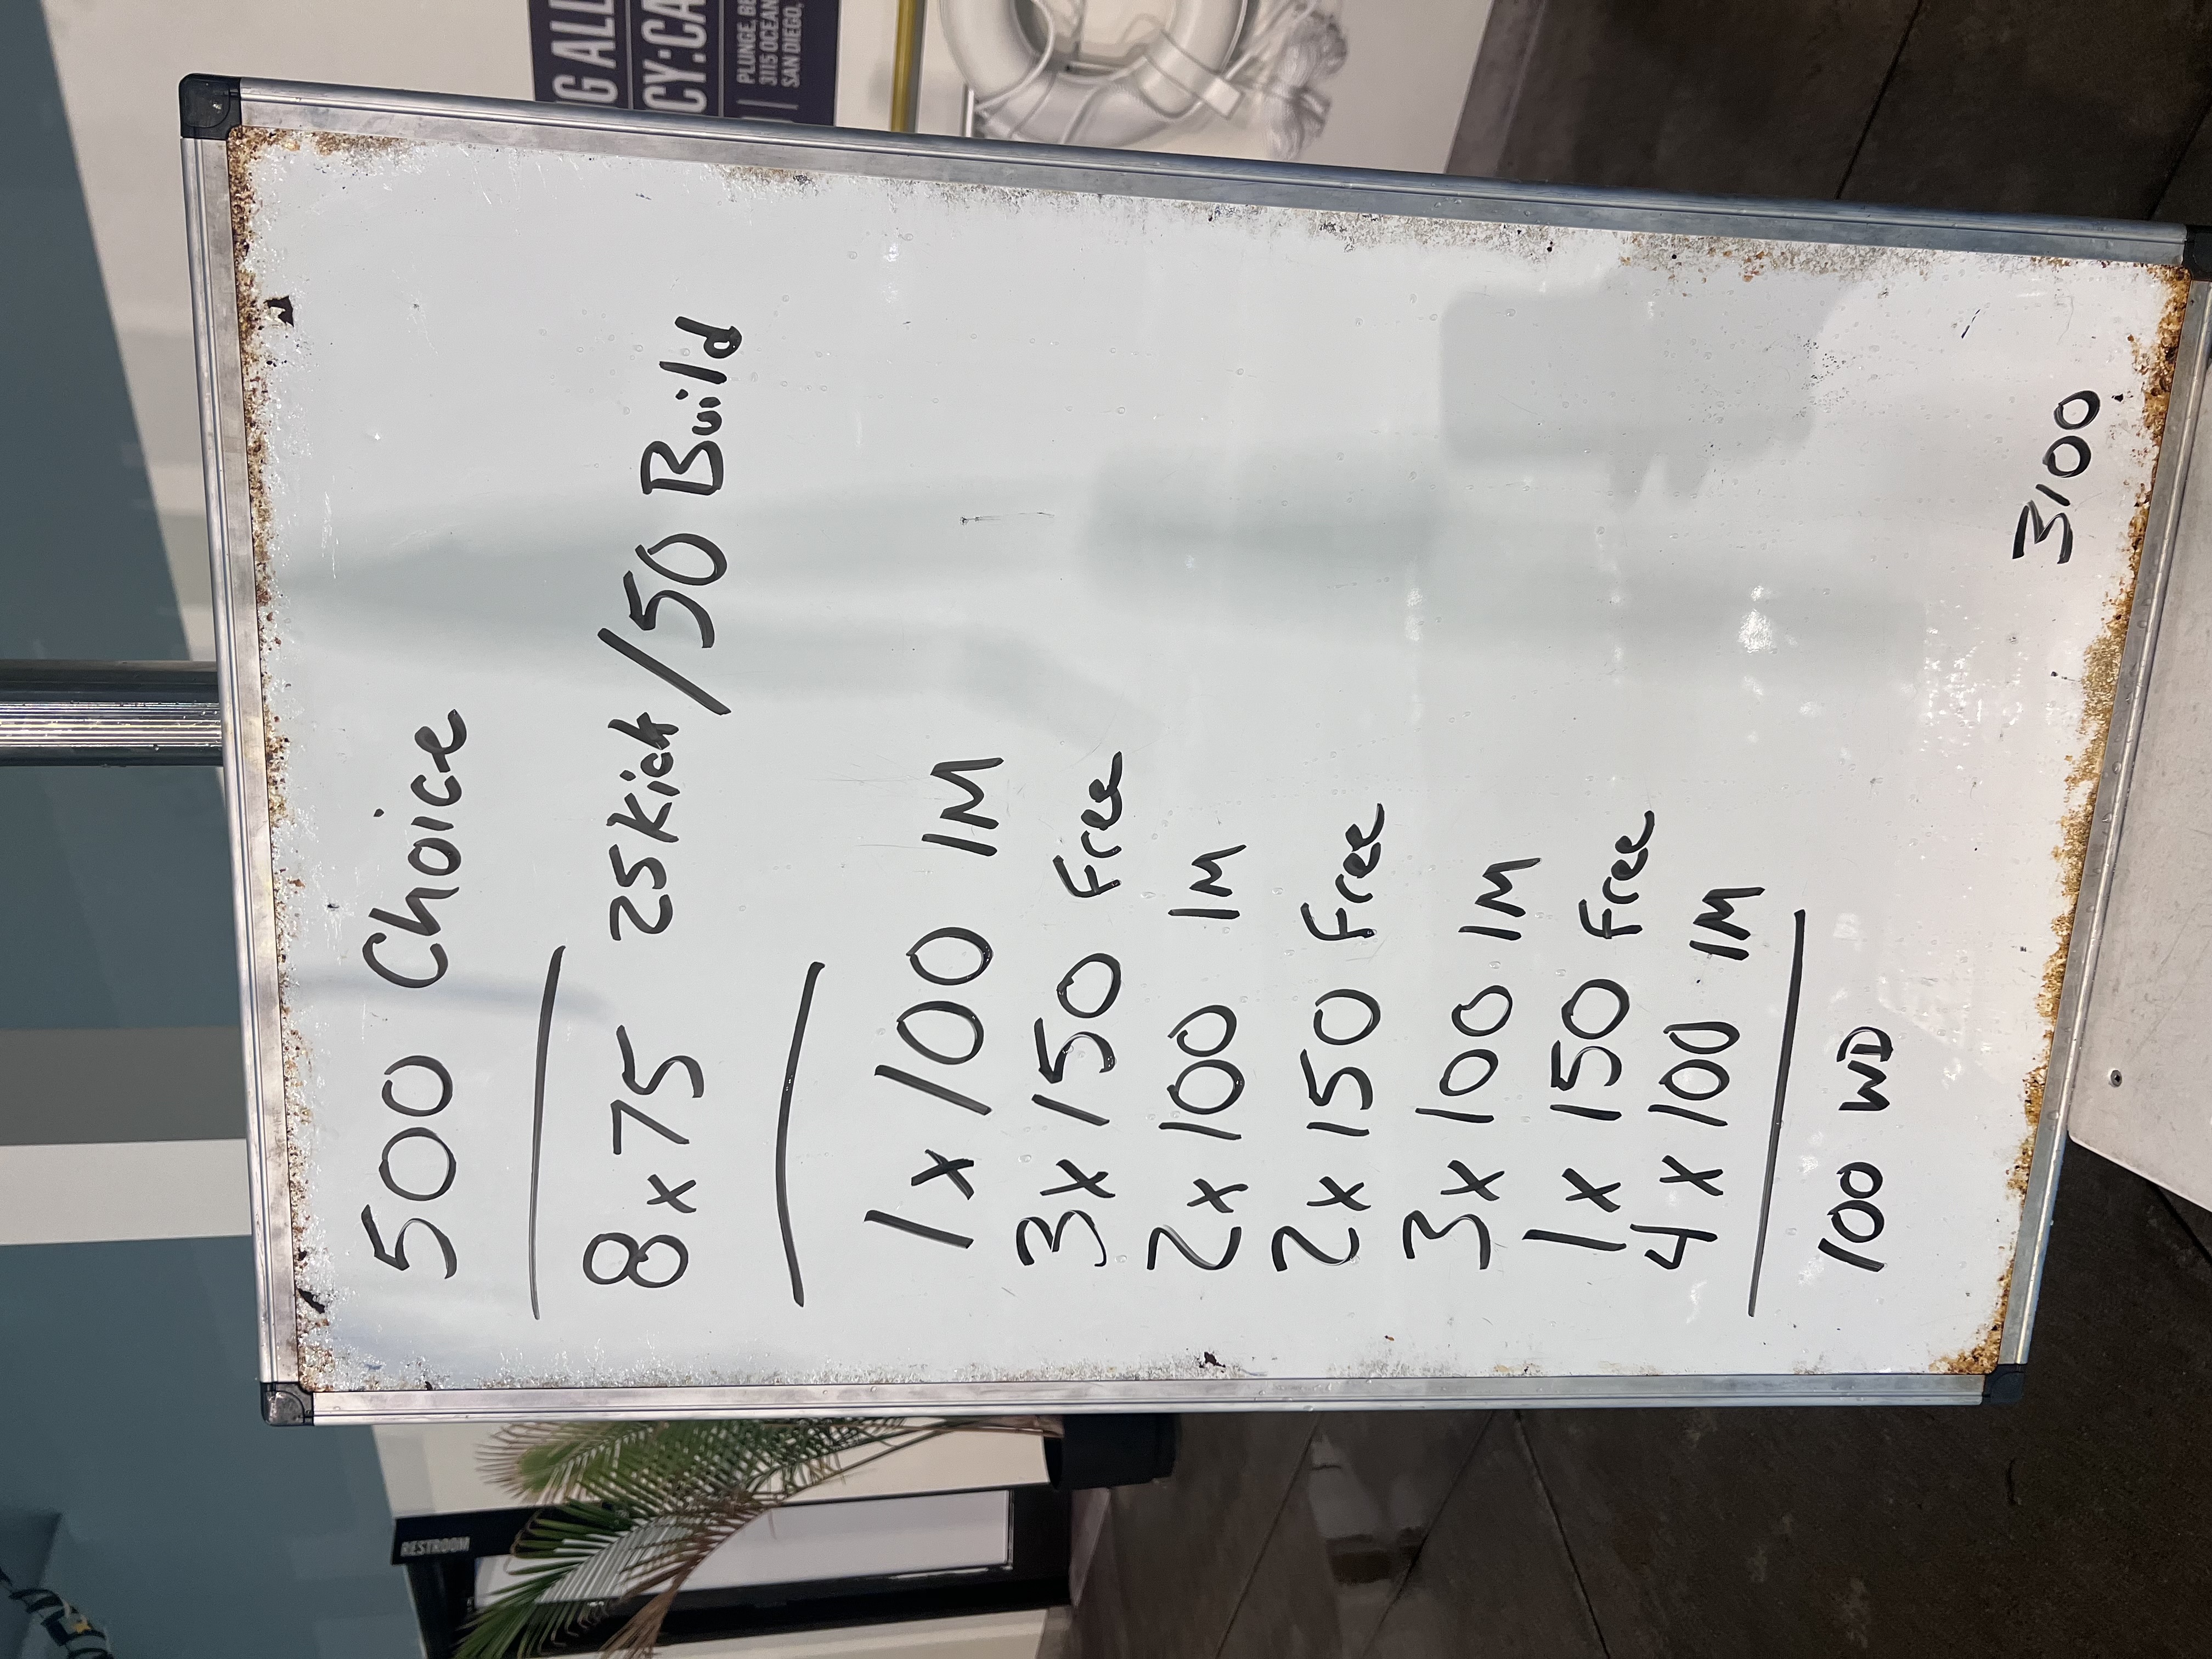 500 Choice
8 x 75 25 Kick/50 Build
1 x 100 IM
3 x 150 Free
2 x 100 IM
2 x 150 Free
3 x 100 IM
1 x 150 Free
4 x 100 IM
100 WD
3100
G ALL
CY:CA
PLUNGE, BE
3115 OCEAN
SAN DIEGO,
RESTROOM